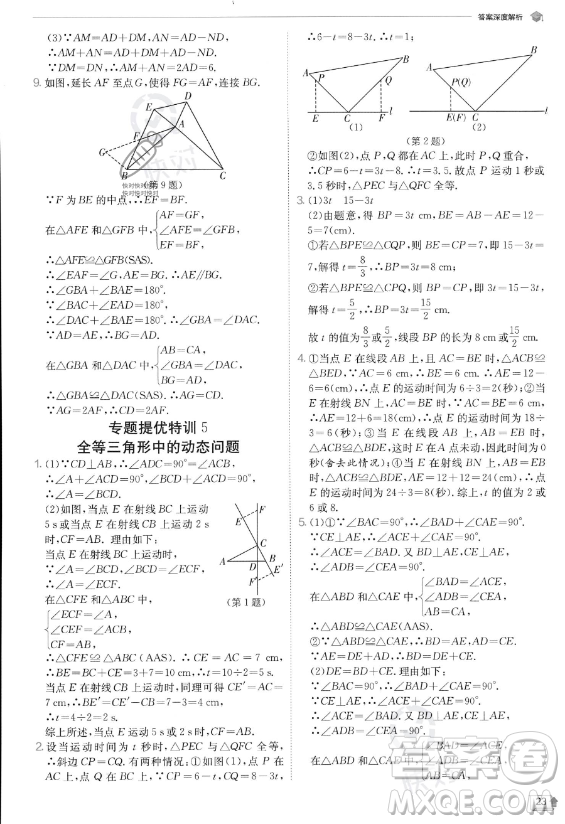 答案深度解析
(3)∵AM=AD+DM,∴AM=AD+DN.
∵DM=DN,∴AM+AN=2AD=6.
9.如图,延长AF至点G,使得FG=AF,连接BG.
E
D
F
A
B
C
G
(第9题)
快对快对快对
快对快对快对
∵F为BE的中点,∴EF=BF.
在△AFE和△GFB中,
AF=GF,
∠AFE=∠GFB,
EF=BF,
∴△AFE≌△GFB(SAS).
∴∠EAF=∠G.∴AE∥BG.
∴∠GBA+∠BAE=180°.
∵∠BAC+∠DAE=180°,
∴∠GBA=∠DAC.∵AE=GB,
∵AD=AE,∴AD=GB.
在△GBA和△DAC中,
AB=CA,
∠GBA=∠DAC,
BG=AD,
∴△GBA≌△DAC(SAS).∴AG=CD.
∵AG=2AF,∴CD=2AF.
专题提优特训5
全等三角形中的动态问题
1.(1)∵CD⊥AB,∴∠ADC=90°=∠ACB.
∴∠A+∠ACD=∠ACD+∠BCD=90°.
∴∠A=∠BCD.
(2)如图,当点E在射线BC上移动
5 s或当点E在射线CB上移动2 s
时,CF=AB.理由如下:
当点E在射线BC上移动时,
∵∠A=∠BCD,∠BCD=∠ECF,
∴∠A=∠ECF.
在△CFE和△ABC中,
∠ECF=∠A,
∠CEF=∠ACB,
CF=AB,
F
C
A
D
B
E′
(第1题)
∴△CFE≌△ABC(AAS).∴CE=AC=7 cm,
∴BE=BC+CE=3+7=10(cm).∴t=10÷2=5.
当点E在射线CB上移动时,可得CE′=AC=
7 cm,∴BE′=CE′-BC=7-3=4(cm).
∴t=4÷2=2.
综上所述,当t=5或2时,CF=AB.
2.设当运动时间为t秒时,△PEC与△QFC全等,
∴斜边CP=CQ.有两种情况:①如图(1),点P
在AC上,点Q在BC上,∵CP=6-t,CQ=8-3t,
∴6-t=8-3t,∴t=1.
A
P
B
Q
E
C
F
l
(1)
A
B
P(Q)
E(F)
C
l
(2)
(第2题)
②如图(2),点P,Q都在AC上,此时P,Q重合,
∴CP=6-t=3t-8.∴t=3.5.故点P运动1秒或
3.5秒时,△PEC与△QFC全等.
3.(1)3t 15-3t
(2)由题意,得PB=3t cm,BE=AB-AE=12-
5=7(cm).
①若△BPE≌△CQP,则BE=CP=7,即15-3t=
7,解得t=8/3,∴PB=3t=8 cm;
②若△BPE≌△CPQ,则PB=PC,即3t=15-3t,
解得t=5/2,∴PB=3t=15/2 cm.
故t的值为8/3或5/2,线段PB的长为8 cm或15/2
cm.
4.①当点E在线段AB上,AC=BE时,△ACB≌
△BED,∵AC=6 cm,∴BE=6 cm.∴AE=12-
6=6(cm).∴点E的运动时间为6÷3=2(秒).②当
点E在射线BN上,AC=BE时,△ACB≌△BED,
∴AE=12+6=18(cm).∴点E的运动时间为18÷
3=6(秒).③当点E在线段AB上,AB=EB时,
△ACB≌△BDE,这时点E未动,因此时间为0秒
(舍去此情况);④当点E在射线BN上,AB=EB
时,△ACB≌△BDE,AE=12+12=24(cm),∴点
E的运动时间为24÷3=8(秒).综上,t的值为2或
6或8.
5.(1)①∵∠BAC=90°,∴∠BAD+∠CAE=90°.
∵CE⊥AE,∴∠ACE+∠CAE=90°.
∴∠ACE=∠BAD.∵BD⊥AE,CE⊥AE,
∴∠BDA=∠AEC=90°.
在△ABD和△CAE中,
∠BAD=∠ACE,
∠BDA=∠AEC,
AB=CA,
∴△ABD≌△CAE(AAS).
②∵△ABD≌△CAE,∴BD=AE,AD=CE.
∵AE=AD+DE,∴BD=DE+CE.
(2)DE=BD+CE.理由如下:
∵∠BAC=90°,∴∠BAD+∠CAE=90°.
∵BD⊥AE,∴∠BAD+∠ABD=90°.
∴∠ABD=∠CAE.
∵BD⊥AE,CE⊥AE,∴∠ADB=∠CEA=90°.
在△ABD和△CAE中,
∠ABD=∠CAE,
23